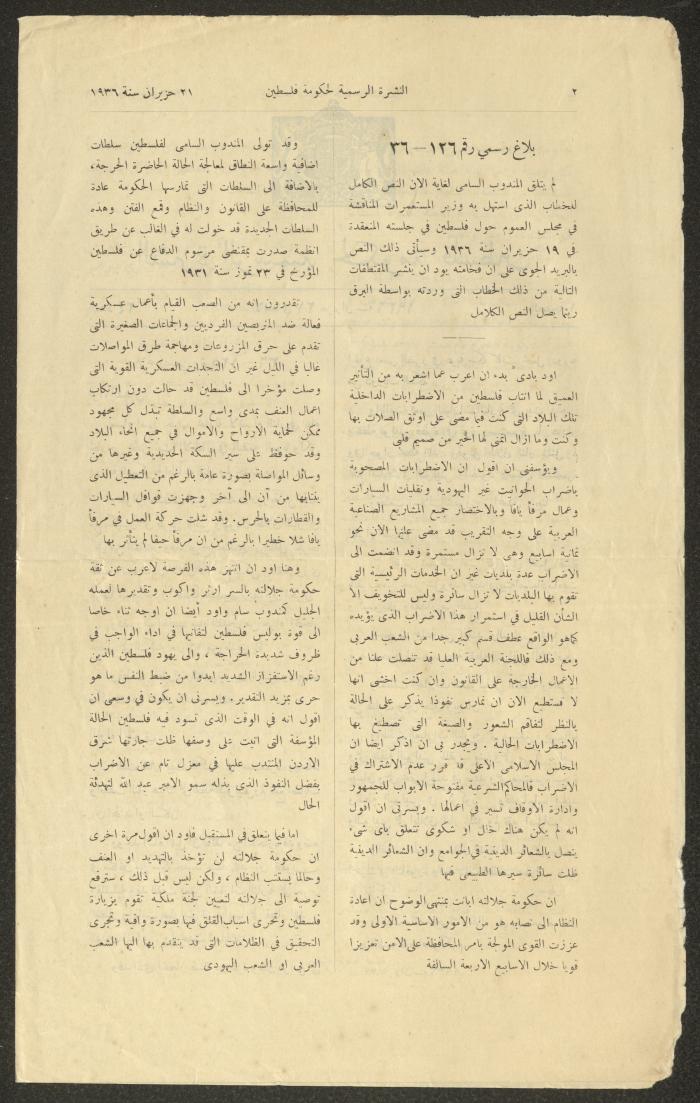 ٢
النشرة الرسمية لحكومة فلسطين
٢١ حزيران سنة ١٩٣٦
بلاغ رسمي رقم ١٢٦ — ٣٦
لم يتلق المندوب السامى لغاية الان النص الكامل
للخطاب الذى استهل به وزير المستعمرات المناقشة
في مجلس العموم حول فلسطين في جلسته المنعقدة
في ١٩ حزيران سنة ١٩٣٦ وسيأتى ذلك النص
بالبريد الجوى على ان فخامته يود ان ينشر المقتطفات
التالية من ذلك الخطاب التى وردته بواسطة البرق
ريثما يصل النص الكلامل
اود بادىء بدء ان اعرب عما اشعر به من التأثير
العميق لما انتاب فلسطين من الاضطرابات الداخلية
تلك البلاد التى كنت فيما مضى على اوثق الصلات بها
وكنت وما ازال اتمنى لها الخير من صميم قلبى
ويؤسفنى ان اقول ان الاضطرابات المصحوبة
باضراب الحوانيت غير اليهودية ونقليات السيارات
وعمال مرفأ يافا وبالاختصار جميع المشاريع الصناعية
العربية على وجه التقريب قد مضى عليها الان نحو
ثمانية اسابيع وهى لا تزال مستمرة وقد انضمت الى
الاضراب عدة بلديات غير ان الخدمات الرئيسية التى
تقوم بها البلديات لا تزال سائرة وليس للتخويف الا
الشأن القليل في استمرار هذا الاضراب الذى يؤيده
كما هو الواقع عطف قسم كبير جدا من الشعب العربى
ومع ذلك فاللجنة العربية العليا قد تنصلت علنا من
الاعمال الخارجة على القانون وان كنت اخشى انها
لا تستطيع الان ان تمارس نفوذا يذكر على الحالة
بالنظر لتفاقم الشعور والصبغة التى تصطبغ بها
الاضطرابات الحالية . ويجدر بى ان اذكر ايضا ان
المجلس الاسلامى الاعلى قد قرر عدم الاشتراك في
الاضراب فالمحاكم الشرعية مفتوحة الابواب للجمهور
وادارة الاوقاف تسير في اعمالها . ويسرنى ان اقول
انه لم يكن هناك خلل او شكوى تتعلق باى شىء
يتصل بالشعائر الدينية في الجوامع وان الشعائر الدينية
ظلت سائرة سيرها الطبيعى فيها
ان حكومة جلالته ابانت بمنتهى الوضوح ان اعادة
النظام الى نصابه هو من الامور الاساسية الاولى وقد
عززت القوى الموكلة بامر المحافظة على الامن تعزيزا
قويا خلال الاسابيع الاربعة السالفة
وقد تولى المندوب السامى لفلسطين سلطات
اضافية واسعة النطاق لمعالجة الحالة الحاضرة الحرجة،
بالاضافة الى السلطات التى تمارسها الحكومة عادة
للمحافظة على القانون والنظام وقمع الفتن وهذه
السلطات الجديدة قد خولت له في الغالب عن طريق
انظمة صدرت بمقتضى مرسوم الدفاع عن فلسطين
المؤرخ في ٢٣ تموز سنة ١٩٣١
تقدرون انه من الصعب القيام بأعمال عسكرية
فعالة ضد المتربصين الفرديين والجماعات الصغيرة التى
تقدم على حرق المزروعات ومهاجمة طرق المواصلات
غالبا في الليل غير ان النجدات العسكرية القوية التى
وصلت مؤخرا الى فلسطين قد حالت دون ارتكاب
اعمال العنف بمدى واسع والسلطة تبذل كل مجهود
ممكن لحماية الارواح والاموال في جميع انحاء البلاد
وقد حوفظ على سير السكة الحديدية وغيرها من
وسائل المواصلة بصورة عامة بالرغم من التعطيل الذى
ينتابها من آن الى آخر وجهزت قوافل السيارات
والقطارات بالحرس. وقد شلت حركة العمل في مرفأ
يافا شلا خطيرا بالرغم من ان مرفأ حيفا لم يتأثر بها
وهنا اود ان انتهز هذه الفرصة لاعرب عن ثقة
حكومة جلالته بالسر ارثر واكوب وتقديرها لعمله
الجليل كمندوب سام واود أيضا ان اوجه ثناء خاصا
الى قوة بوليس فلسطين لتفانيها في اداء الواجب في
ظروف شديدة الحراجة ، والى يهود فلسطين الذين
رغم الاستفزاز الشديد ابدوا من ضبط النفس ما هو
حرى بمزيد التقدير. ويسرنى ان يكون في وسعى ان
اقول انه في الوقت الذى تسود فيه فلسطين الحالة
المؤسفة التى اتيت على وصفها ظلت جارتها شرق
الاردن المنتدب عليها في معزل تام عن الاضراب
بفضل النفوذ الذى بذله سمو الامير عبد الله لتهدئة
الحال
اما فيما يتعلق في المستقبل فاود ان اقول مرة اخرى
ان حكومة جلالته لن تؤخذ بالتهديد او العنف
وحالما يستتب النظام ، ولكن ليس قبل ذلك ، سترفع
توصية الى جلالته لتعيين لجنة ملكية تقوم بزيارة
فلسطين وتحرى اسباب القلق فيها بصورة وافية وتجرى
التحقيق في الظلامات التى قد يتقدم بها اليها الشعب
العربى او الشعب اليهودى